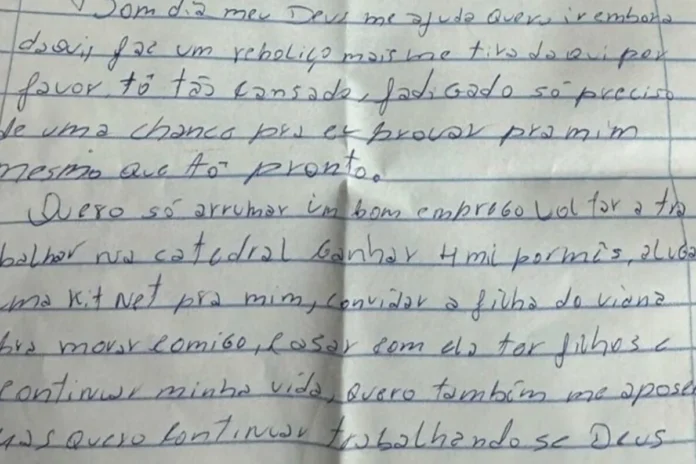 Bom dia meu Deus me ajuda quero ir embora
daqui, faz um reboliço mais me tira daqui por
favor, tô tão cansado, fadigado só preciso
de uma chance pra eu provar pra mim
mesmo que tô pronto.
Quero só arrumar um bom emprego voltar a tra
balhar na catedral ganhar 4 mil por mês, aluga
uma Kit Net pra mim, convidar a filha do viana
pra morar comigo, casar com ela ter filhos e
continuar minha vida, quero também me apose
mas quero continuar trabalhando se Deus